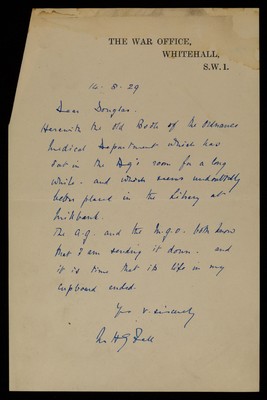 THE WAR OFFICE,
WHITEHALL,
S.W.1.
14. 8. 29
Dear Douglas.
Herewith the Old Book of the Ordnance
Medical Department which has
sat in the room for a long
while - and which seems undoubtedly
better placed in the Library at
Millbank.
The A.G. and the M.G.O. both know
that I am sending it down. and
it is time that its life in my
cupboard ended.
Yrs v. sincerely